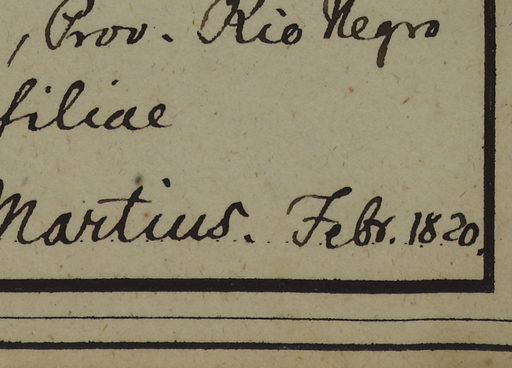 , Prov. Rio Negro
filiae
Martius. Febr. 1820.